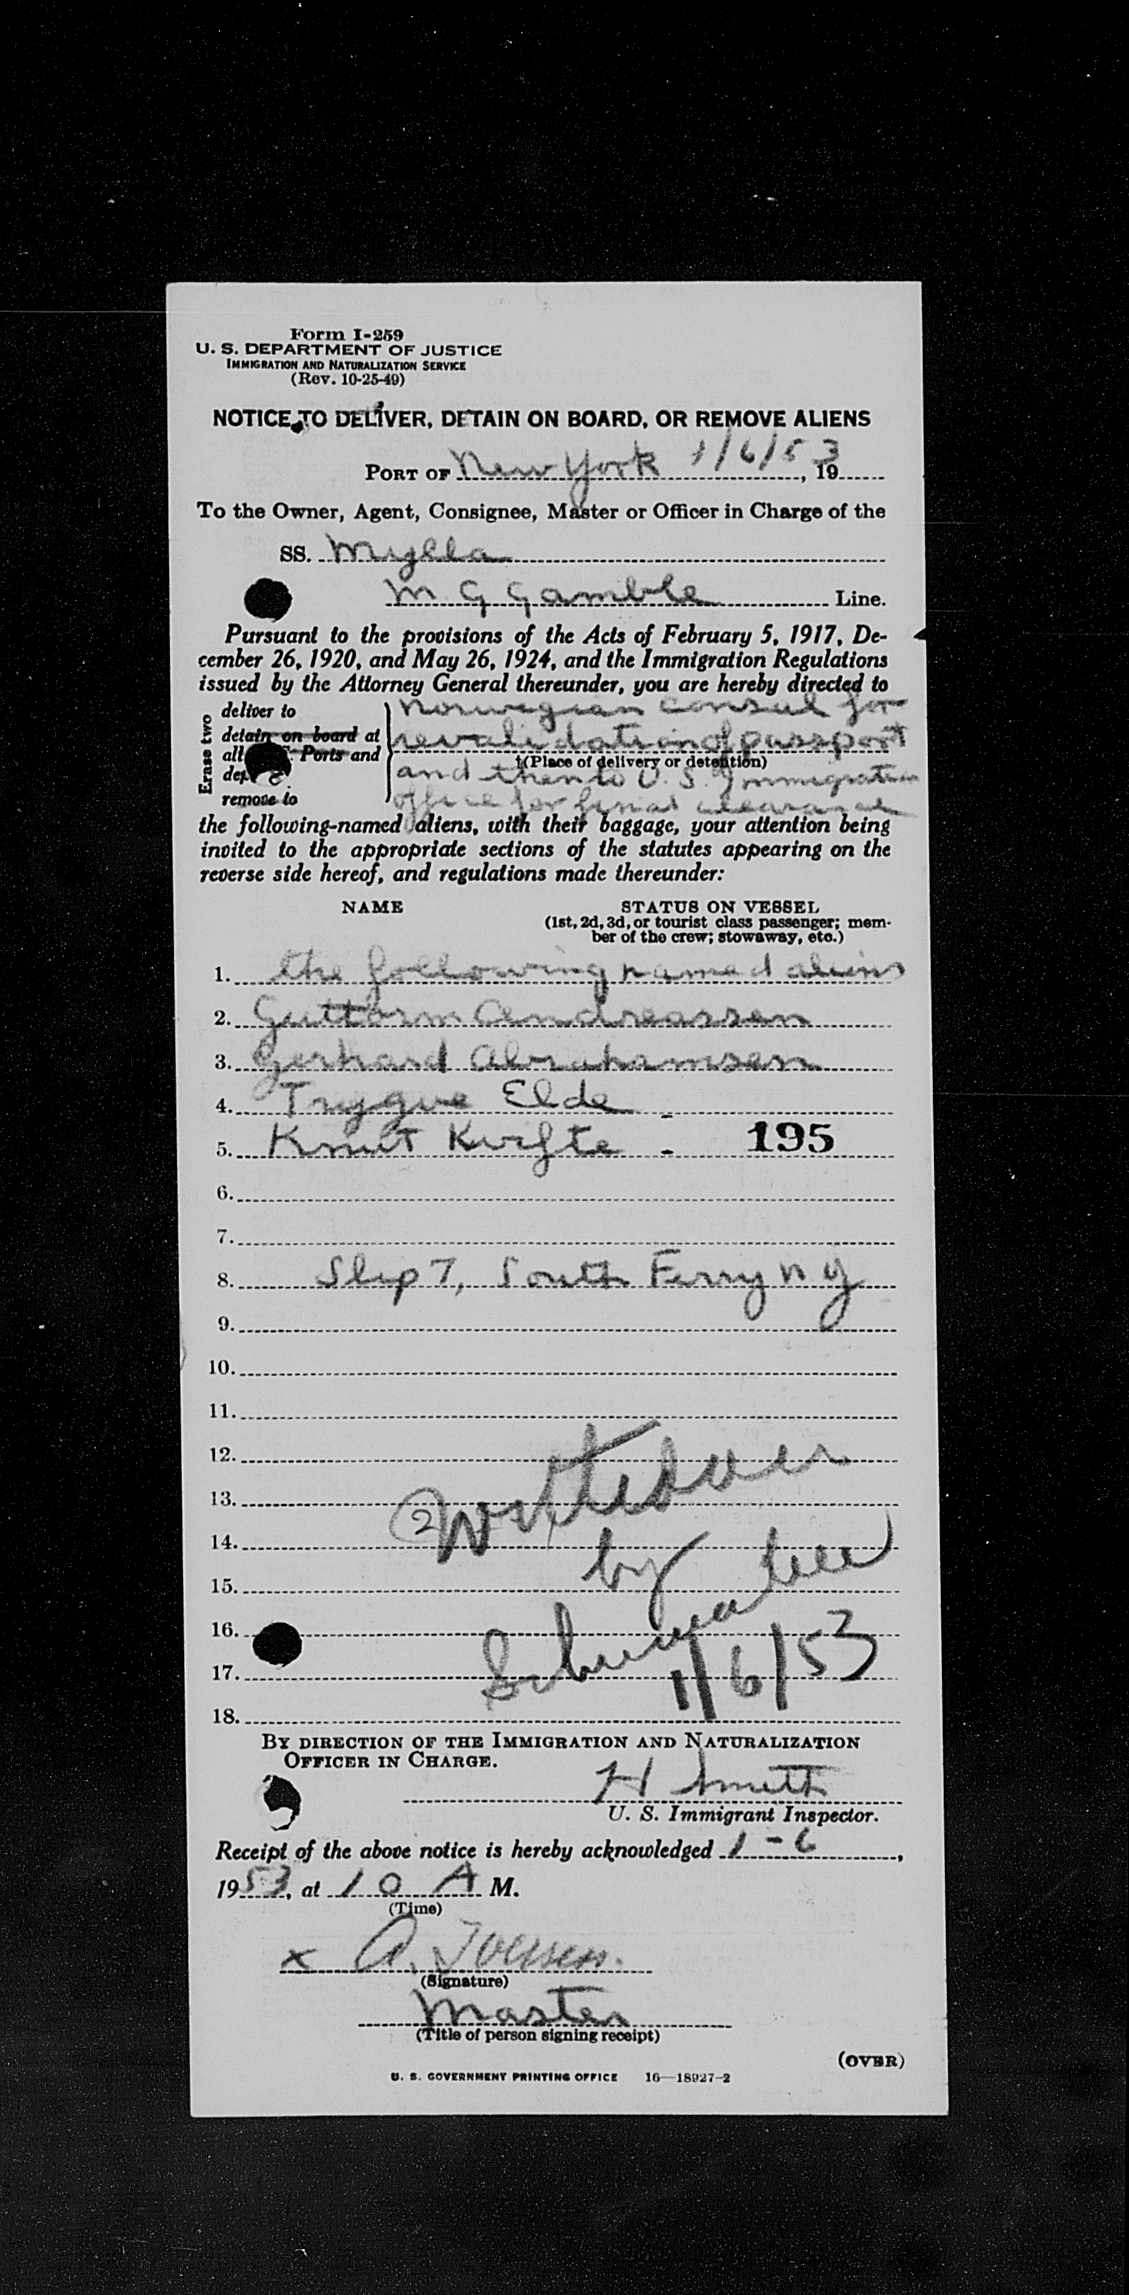 Form I-259
U. S. DEPARTMENT OF JUSTICE
IMMIGRATION AND NATURALIZATION SERVICE
(Rev. 10-25-49)
NOTICE TO DELIVER, DETAIN ON BOARD, OR REMOVE ALIENS
PORT OF New York 1/6/53, 19
To the Owner, Agent, Consignee, Master or Officer in Charge of the
SS. Mylla
M G Gamble Line.
Pursuant to the provisions of the Acts of February 5, 1917, De-
cember 26, 1920, and May 26, 1924, and the Immigration Regulations
issued by the Attorney General thereunder, you are hereby directed to
Erase two
deliver to
detain on board at
all Ports and
remove to
Norwegian consul for
revalidation of passport
†(Place of delivery or detention)
and then to U. S. Immigration
office for final clearance
the following-named aliens, with their baggage, your attention being
invited to the appropriate sections of the statutes appearing on the
reverse side hereof, and regulations made thereunder:
NAME STATUS ON VESSEL
(1st, 2d, 3d, or tourist class passenger; mem-
ber of the crew; stowaway, etc.)
1. the following named aliens
2. Guttorm Andreassen
3. Gerhard Abrahamsen
4. Trygve Elde -
5. Knut Kvifte - 195
6.
7.
8. Slip 7, South Ferry N Y
9.
10.
11.
12.
13. 2
14.
15. by
16.
17. 1/6/53
18.
BY DIRECTION OF THE IMMIGRATION AND NATURALIZATION
OFFICER IN CHARGE.
H Smith
U. S. Immigrant Inspector.
Receipt of the above notice is hereby acknowledged 1-6,
1953, at 10 A M.
(Time)
x A.
(Signature)
Master
(Title of person signing receipt)
(OVER)
U. S. GOVERNMENT PRINTING OFFICE 16—18927-2